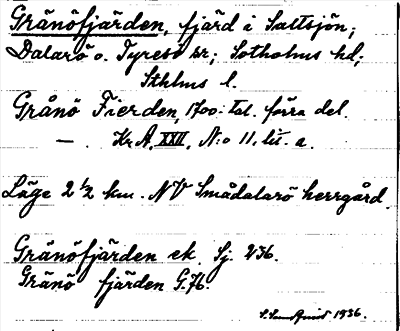 Gränöfjärden, fjärd i Saltsjön;
Dalarö o. Tyresö sr; Sotholms hd;
Sthlms l.
Grånö Fierden, 1700:tal. förra del.
— . Kr A, XXII, N:o 11, lit. a.
Läge 2 ½ km. NV Smådalarö herrgård.
Gränöfjärden ek. Sj. 236.
Gränö fjärden G.76.
1936.